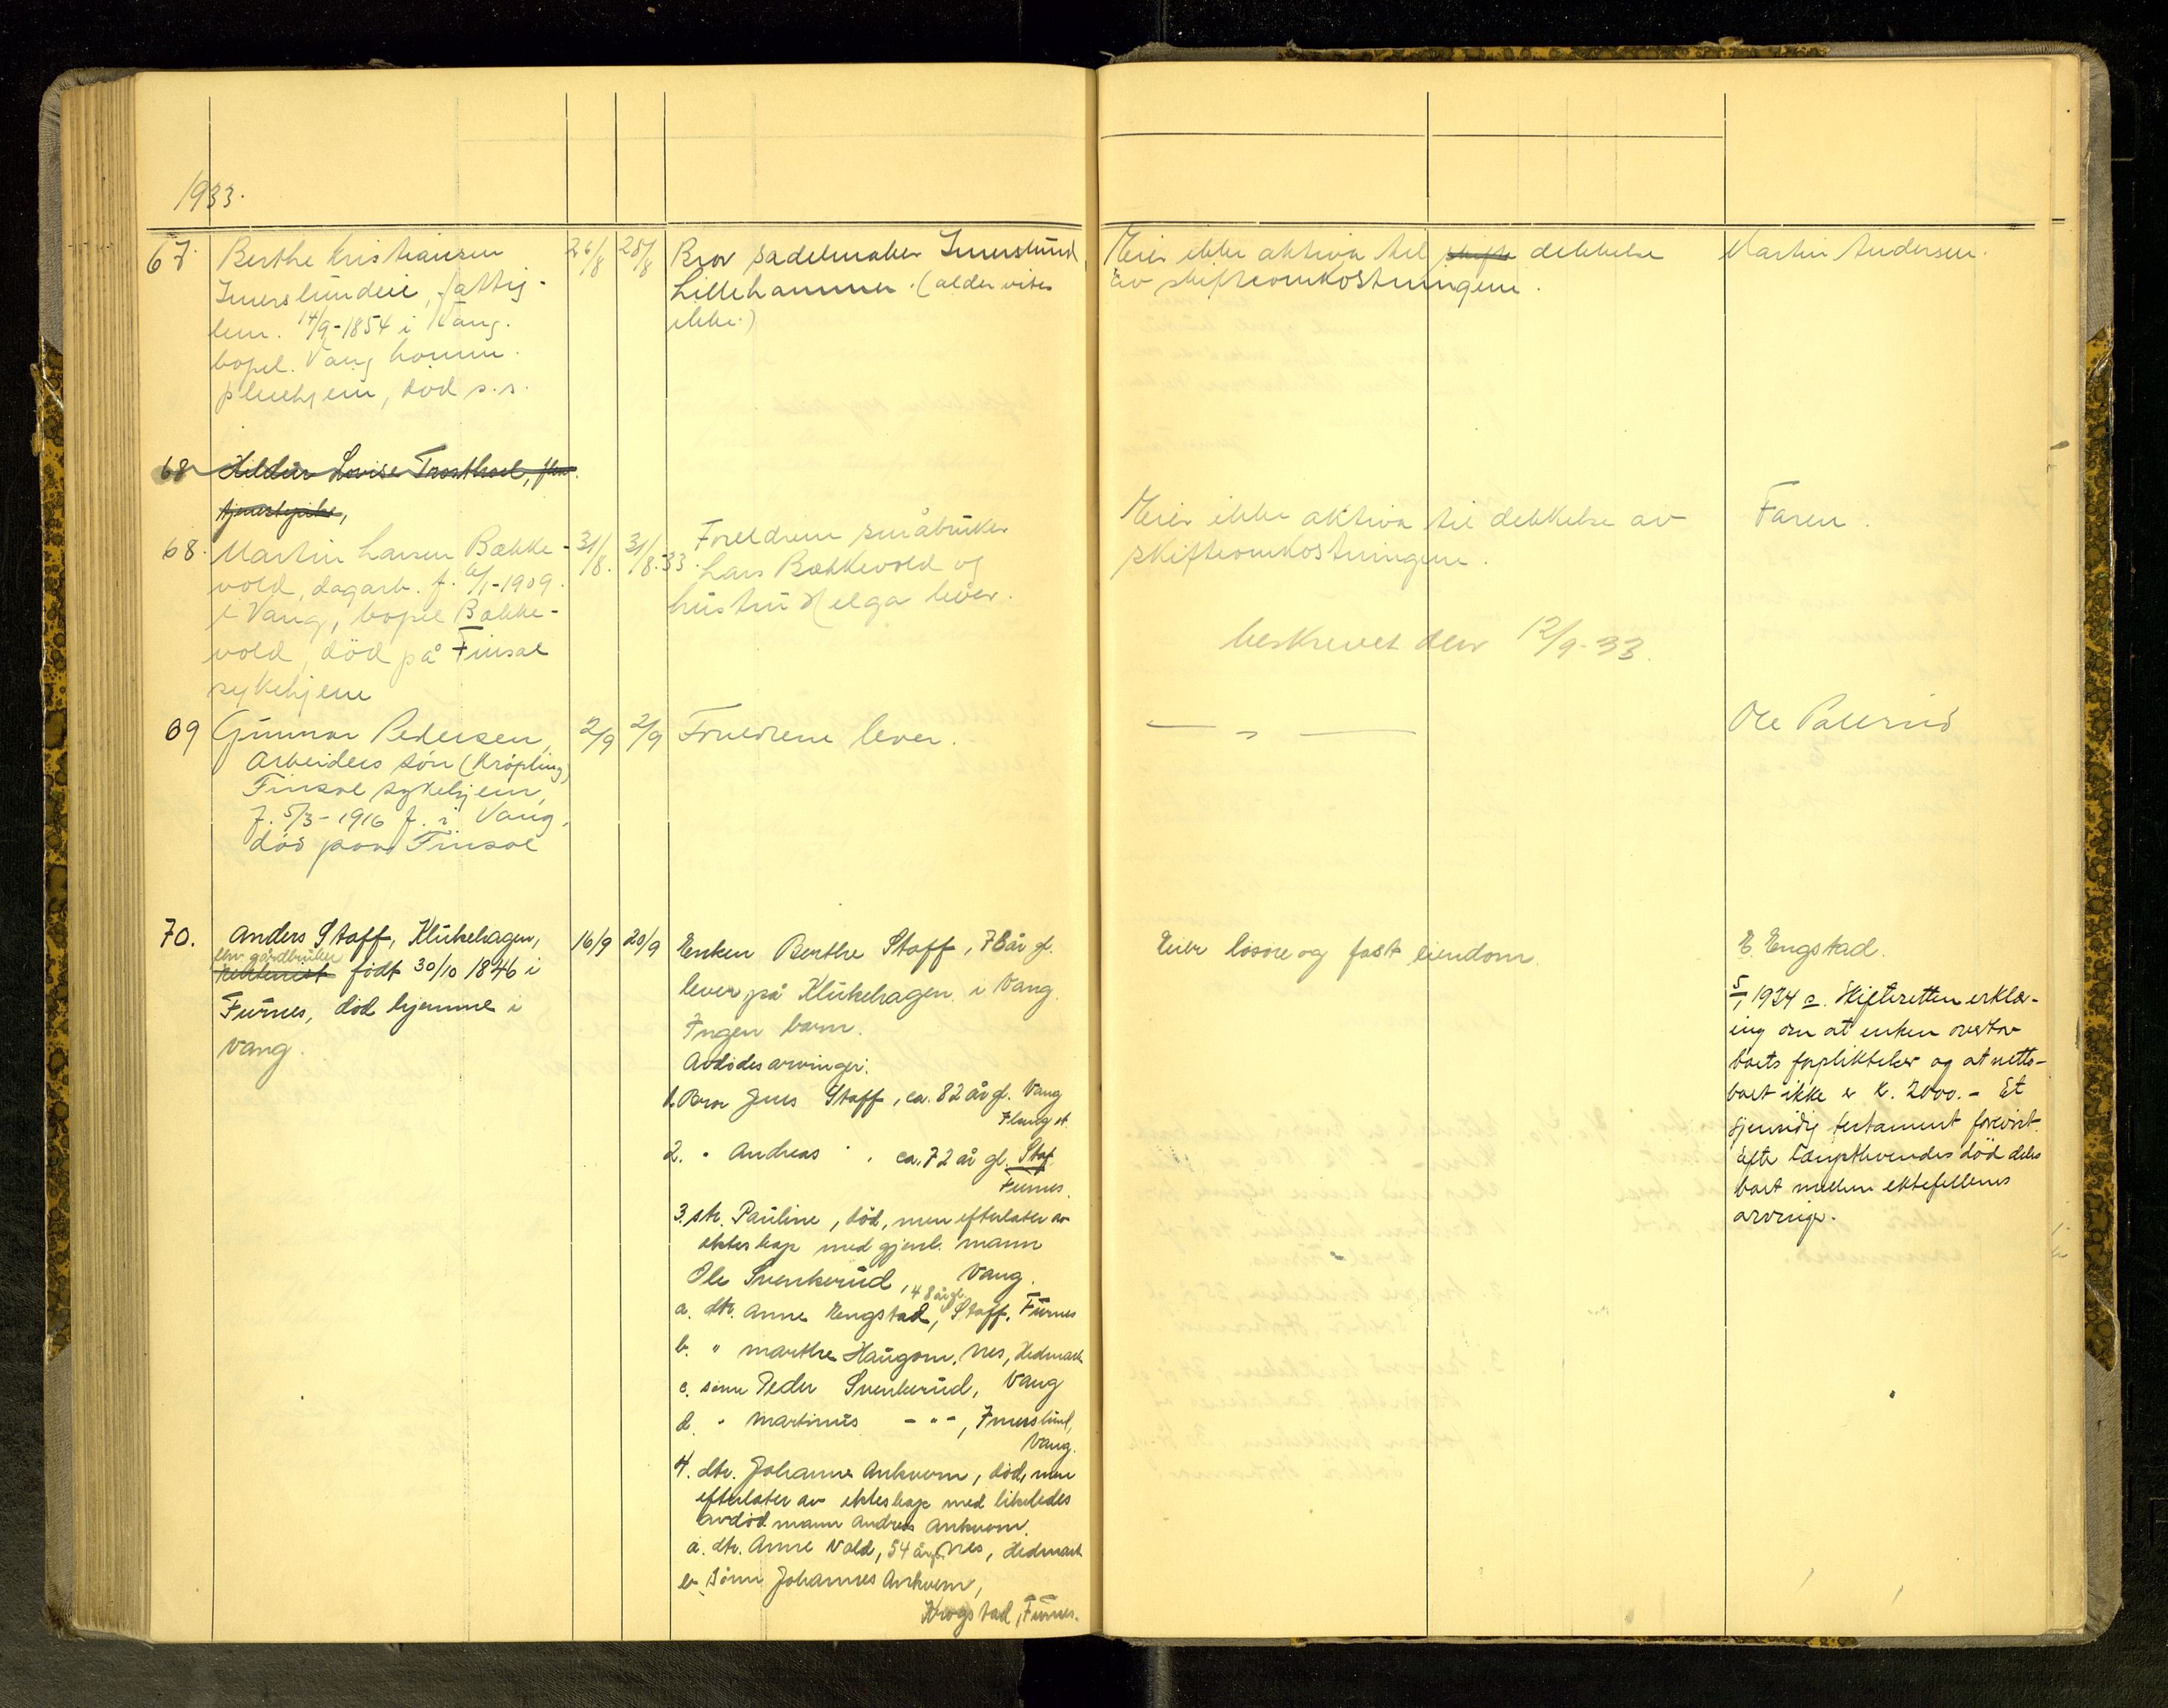 1933.
67. Berthe Kristiansen
Imerslundeie, fattig-
lem. 14/9-1854 i Vang.
bopel. Vang komm.
pleiehjem, död s.s.
26/8 28/8
Bror sadelmaker Imerslund,
Lillehammer. (alder vites
ikke.)
Eier ikke aktiva til skifte dekkelse
av skifteomkostningene.
Martin Andersen.
68 Lovise
tjenestepike,
68. Martin Larsen Bække-
vold, dagarb. f. 6/1-1909.
i Vang, bopel Bække-
vold, död på Finsal
sykehjem
31/8. 31/8-33.
Foreldrene småbruker
Lars Bækkevold og
hustru Helga lever.
Eier ikke aktiva til dekkelse av
skifteomkostningene.
beskrevet den 12/9-33.
Faren.
69 Gunnar Pedersen,
Arbeiders sön (Kröpling)
Finsal sykehjem,
f. 5/3-1916 f. i Vang,
död paa Finsal
2/9 2/9
Foreldrene lever.
— " —
Ole
70. Anders Staff, Klukehagen,
fhv. gårdbruker
født 30/10 1846 i
Furnes, död hjemme i
Vang.
16/9 20/9
Enken Berthe Staff, 78 år gl.
lever på Klukehagen i Vang.
Ingen barn.
Avdödes arvinger:
1. Bror Jens Staff, ca. 82 år gl. Vang
st.
2. " Andreas " , ca. 72 år gl. Staf
Furnes.
3. str. Pauline, död, men efterlater av
ekteskap med gjenl. mann
Ole Svenkerud, Vang.
48 år gl.
a. dtr. Anne Engstad, Staff, Furnes
b. " Marthe Haugom, Nes, Hedmark
c. sönn Peder Svenkerud, Vang
d. " Martinus - " -, Imerslund,
Vang.
4. dtr. Johanne Ankvern, död, men
efterlater av ekteskap med likeledes
avdöd mann Andreas Ankvern.
a. dtr. Anne Vold, 54 år gl. Nes, Hedmark
b. Sönn Johannes Ankvern,
Krogstad, Furnes.
Eier lösöre og fast eiendom.
E. Engstad.
5/1 1934 Skifteretten erklæ-
ing om at enken overtar
boets forpliktelser og at netto-
boet ikke er k. 2000.- Et
gjensidig testament forevist.
Efter lengstlevendes död deles
boet mellem ektefellenes
arvinger.